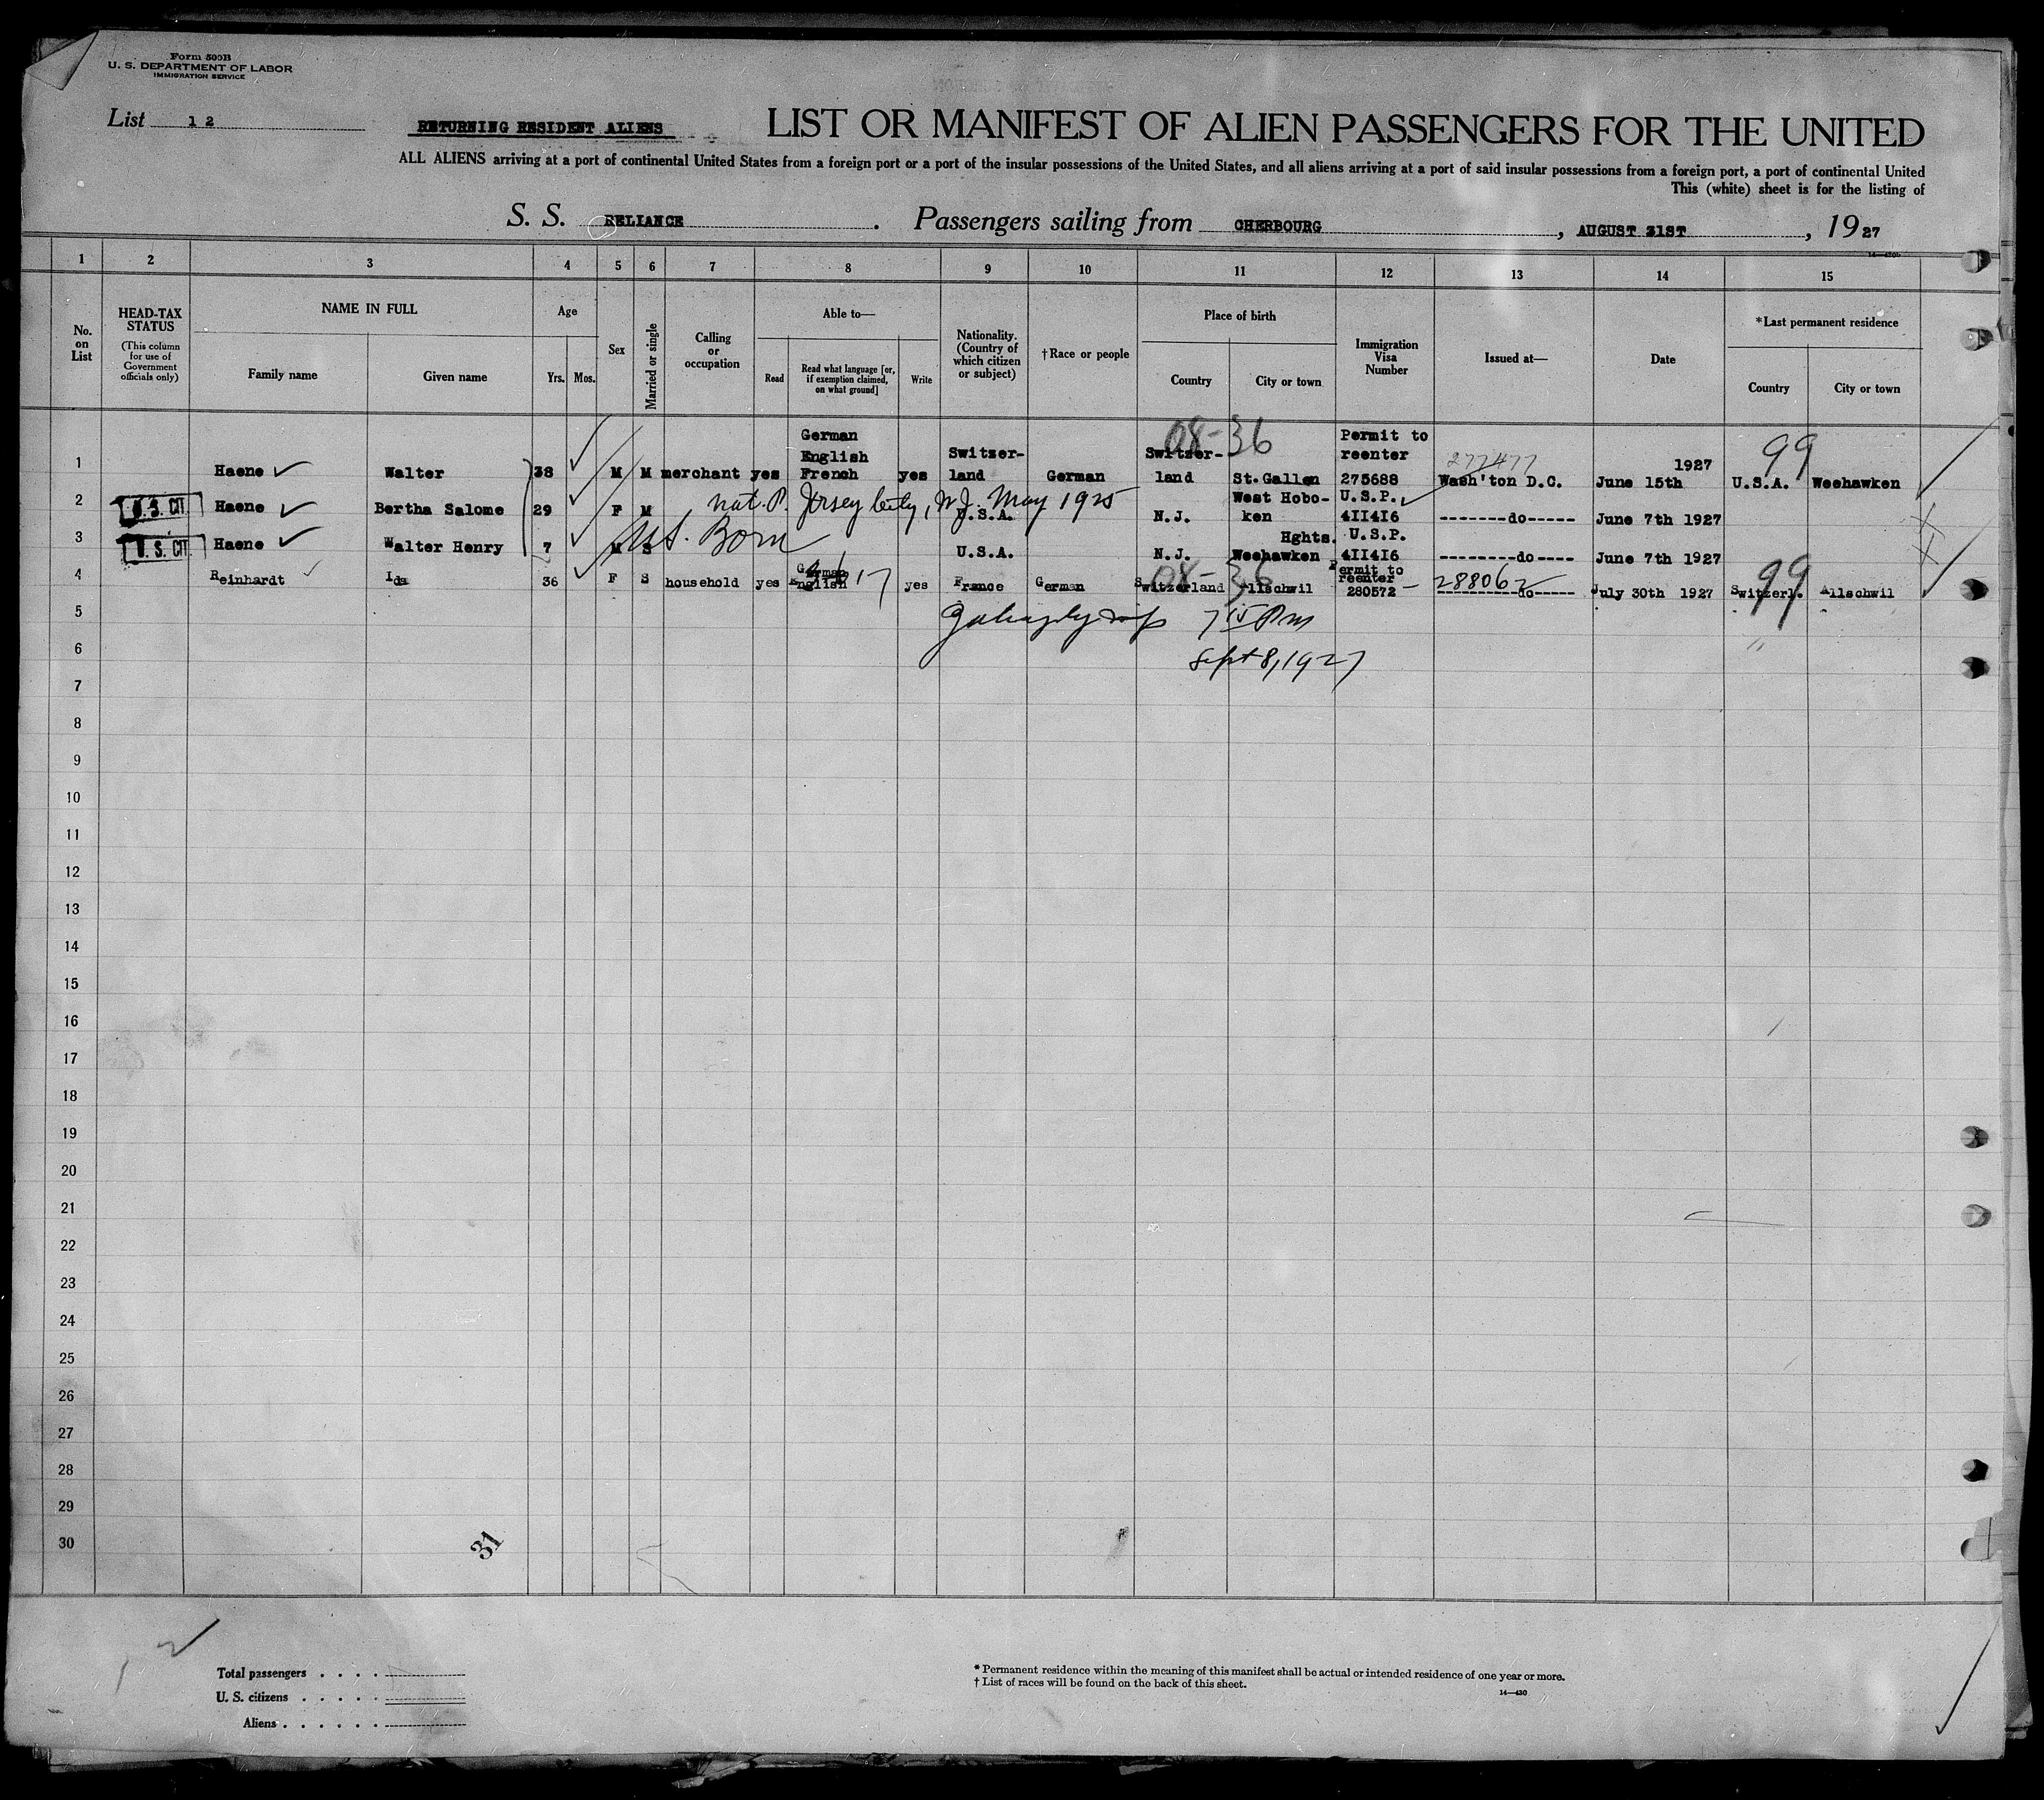 Form 500B
U. S. DEPARTMENT OF LABOR
IMMIGRATION SERVICE
List 12
RETURNING RESIDENT ALIENS
LIST OR MANIFEST OF ALIEN PASSENGERS FOR THE UNITED
ALL ALIENS arriving at a port of continental United States from a foreign port or a port of the insular possessions of the United States, and all aliens arriving at a port of said insular possessions from a foreign port, a port of continental United
This (white) sheet is for the listing of
S. S. RELIANCE . Passengers sailing from CHERBOURG , AUGUST 31ST , 1927
1 2 3 4 5 6 7 8 9 10 11 12 13 14 15
No. on List
HEAD-TAX STATUS
(This column for use of Government officials only)
NAME IN FULL
Family name
Given name
Age
Yrs. Mos.
Sex
Married or single
Calling or occupation
Able to—
Read
Read what language [or, if exemption claimed, on what ground]
Write
Nationality. (Country of which citizen or subject)
†Race or people
Place of birth
Country
City or town
Immigration Visa Number
Issued at—
Date
*Last permanent residence
Country
City or town
08-36
99
277477
1 Haene Walter 38 M M merchant yes German English French yes Switzer-land German Switzer-land St.Gallen Permit to reenter 275688 Wash'ton D.C. June 15th 1927 U.S.A. Weehawken
nat. P. Jersey City, N.J. May 1925
2 U.S. CIT. Haene Bertha Salome 29 F M U.S.A. N.J. West Hobo-ken U.S.P. 4II4I6 -------do----- June 7th 1927
U.S. Born
3 U.S. CIT. Haene Walter Henry 7 M S U.S.A. N.J. Weehawken Hghts. U.S.P. 4II4I6 --------do---- June 7th 1927
08-36
288062
99
4 Reinhardt Ida 36 F S household yes German English yes France German Switzerland Allschwil Permit to reenter 280572 ----------do----- July 30th 1927 Switzerl. Allschwil
5
7 15 PM
6
Sept 8, 1927
7
8
9
10
11
12
13
14
15
16
17
18
19
20
21
22
23
24
25
26
27
28
29
30
31
Total passengers . . . .
U. S. citizens . . . . .
Aliens . . . . . .
* Permanent residence within the meaning of this manifest shall be actual or intended residence of one year or more.
† List of races will be found on the back of this sheet.
14—430